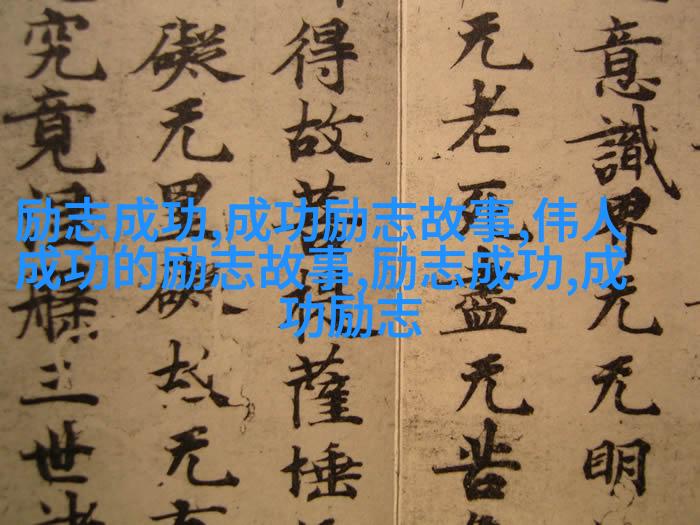 励志成功,成功励志故事,伟人
成功的励志故事,励志成功,成
功励志
意識界无无明
无老死盡无苦
得故菩提薩埵
礙无罣礙故无有
究竟涅槃三世諸